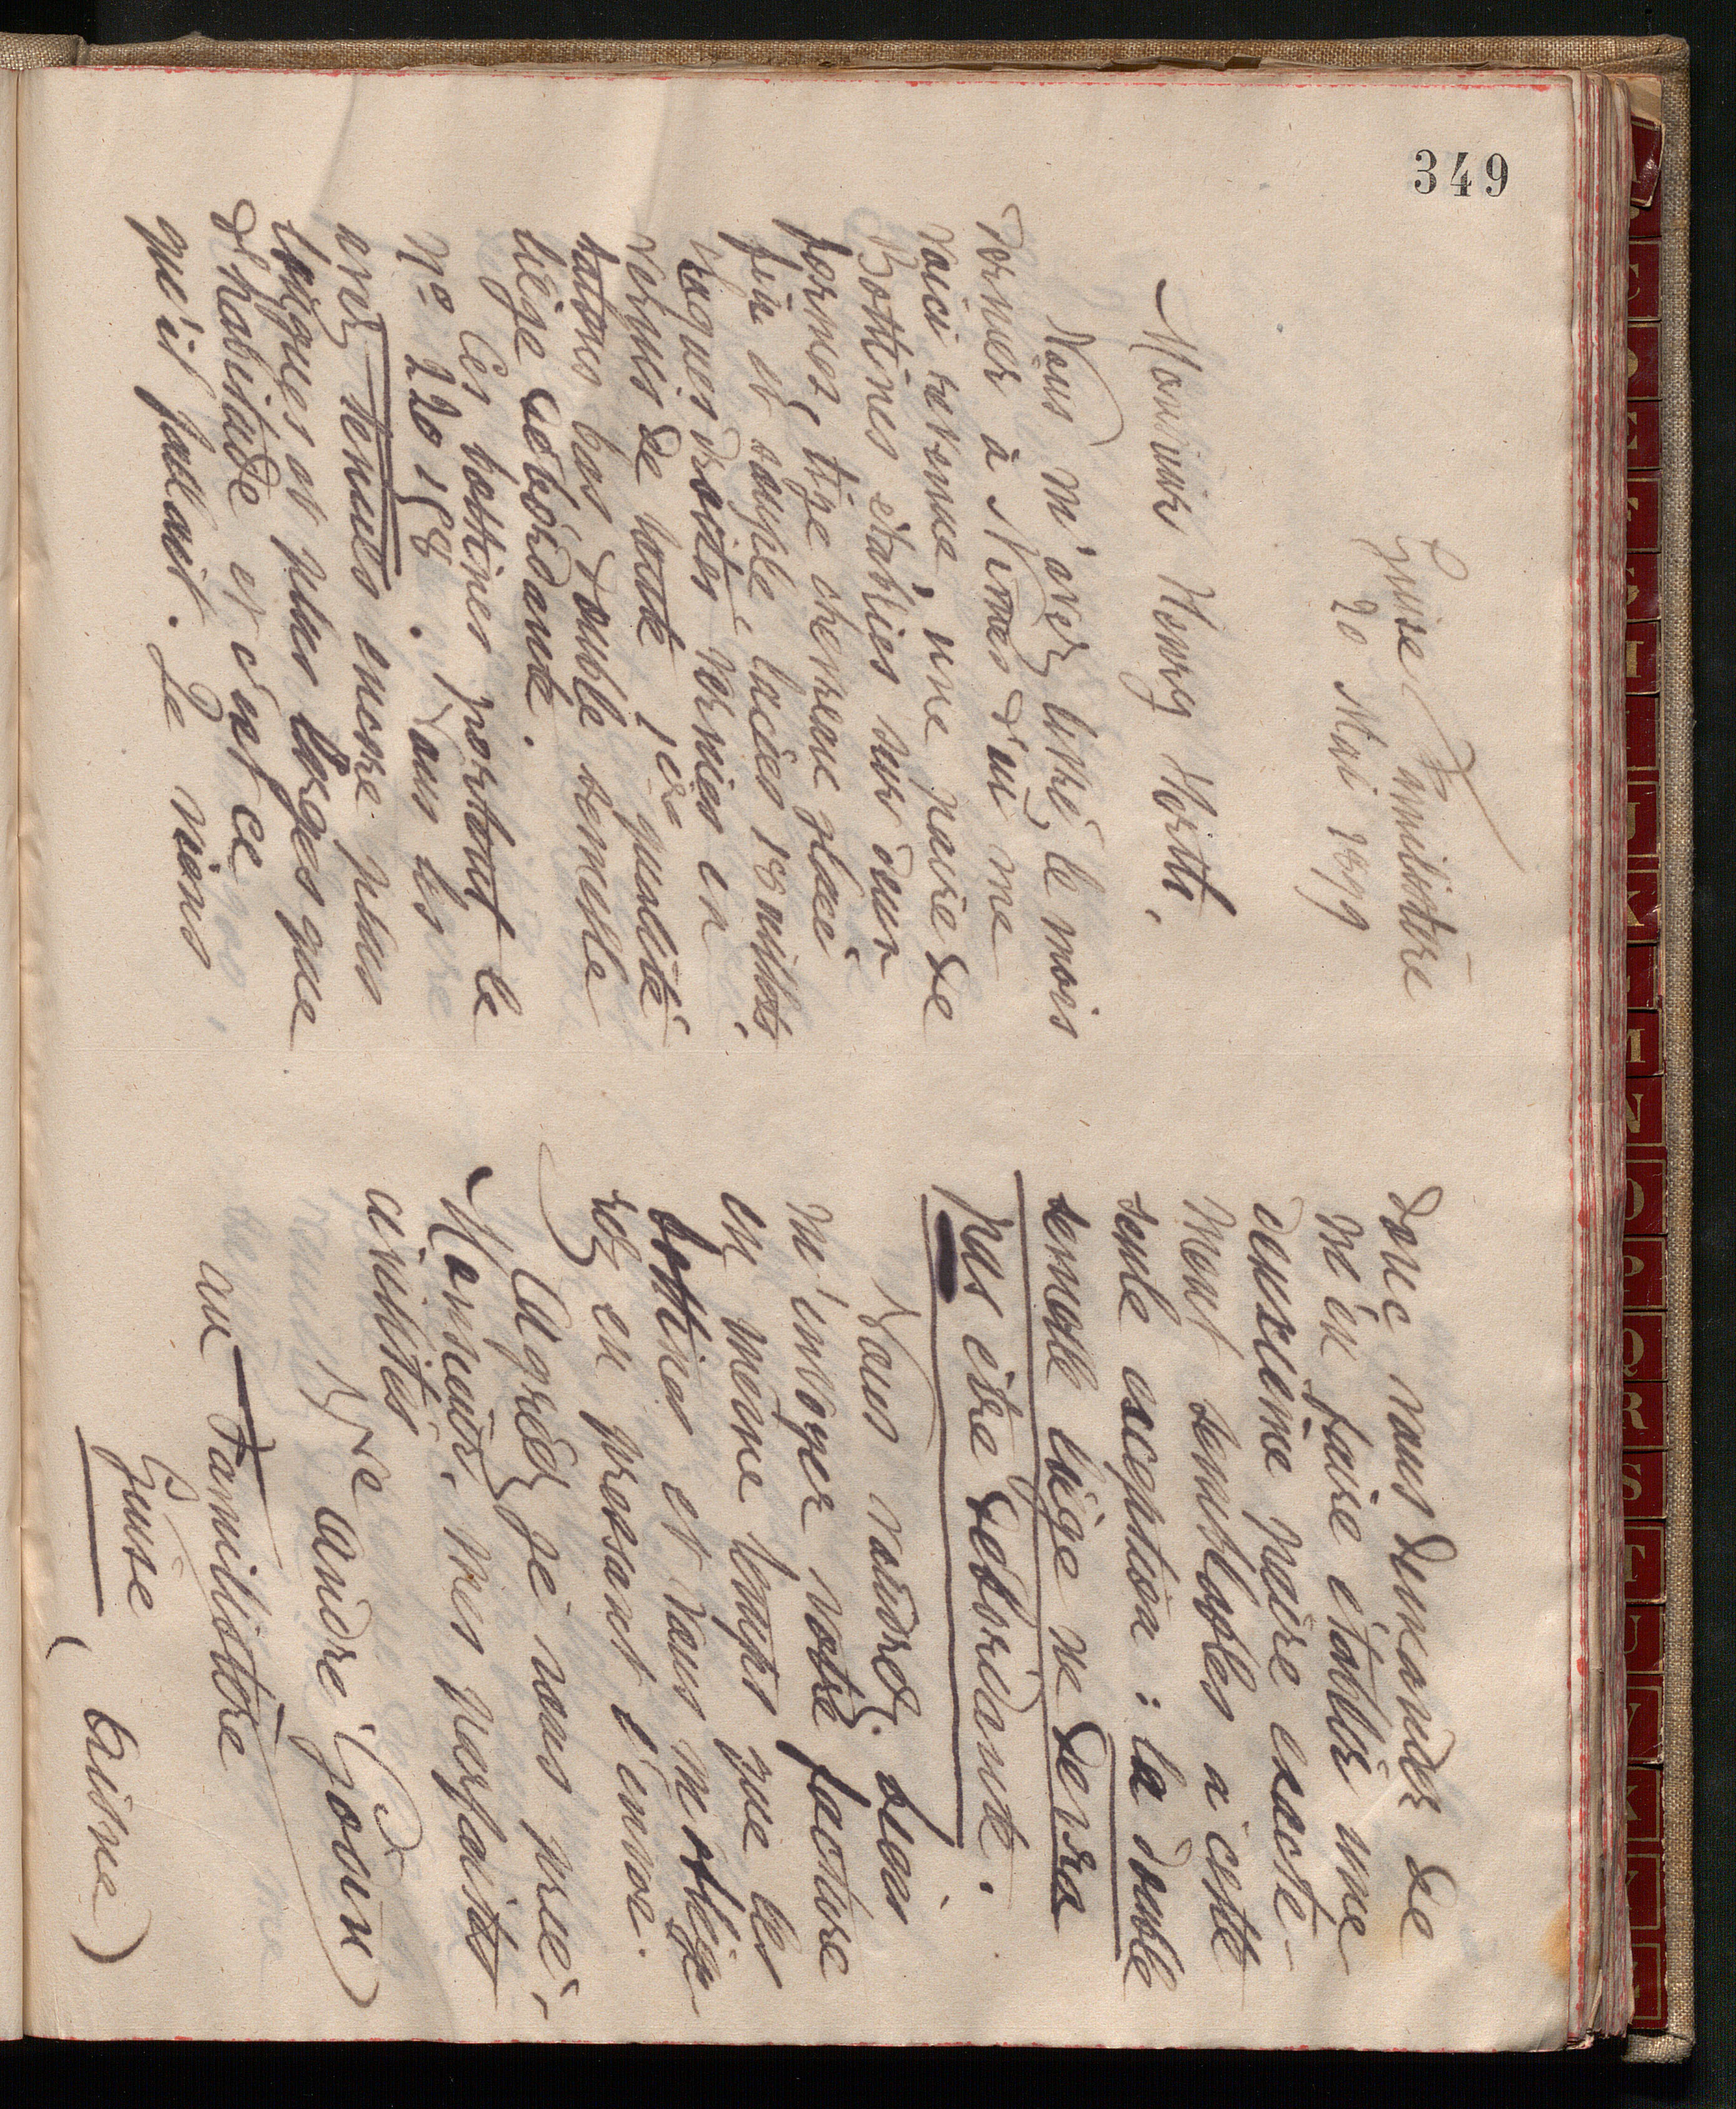 349
Guise Familistère
20 Mai 1899
Monsieur Henry Hortti.
Vous m'avez livré, le mois
dernier à Nimes d'où me
voici revenue, une paire de
Bottines établies sur deux
formes, tige chevreau glacé
fin et souple, lacées 18 œillets
vagues droites vernies en
vernis de toute 1ère qualité
talons bas double semelle
liège débordante.
Ces bottines portent le
nº 220158. Vous les
avez tenues encore plus
longues et plus larges que
d'habitude et c'est ce
qu'il fallait. Je viens
donc vous demander de
m'en faire établir une
deuxième paire exacte-
ment semblables à cette
seule exception : la double
semelle liège ne devra
pas être débordante.
Vous voudrez bien
m'envoyer votre facture
en même temps que les
bottines et vous m'oblige-
rez en pressant l'envoi.
Agréez je vous prie,
Monsieur, mes parfaites
civilités
Vve André (Godin)
au Familistère
Guise (Aisne)